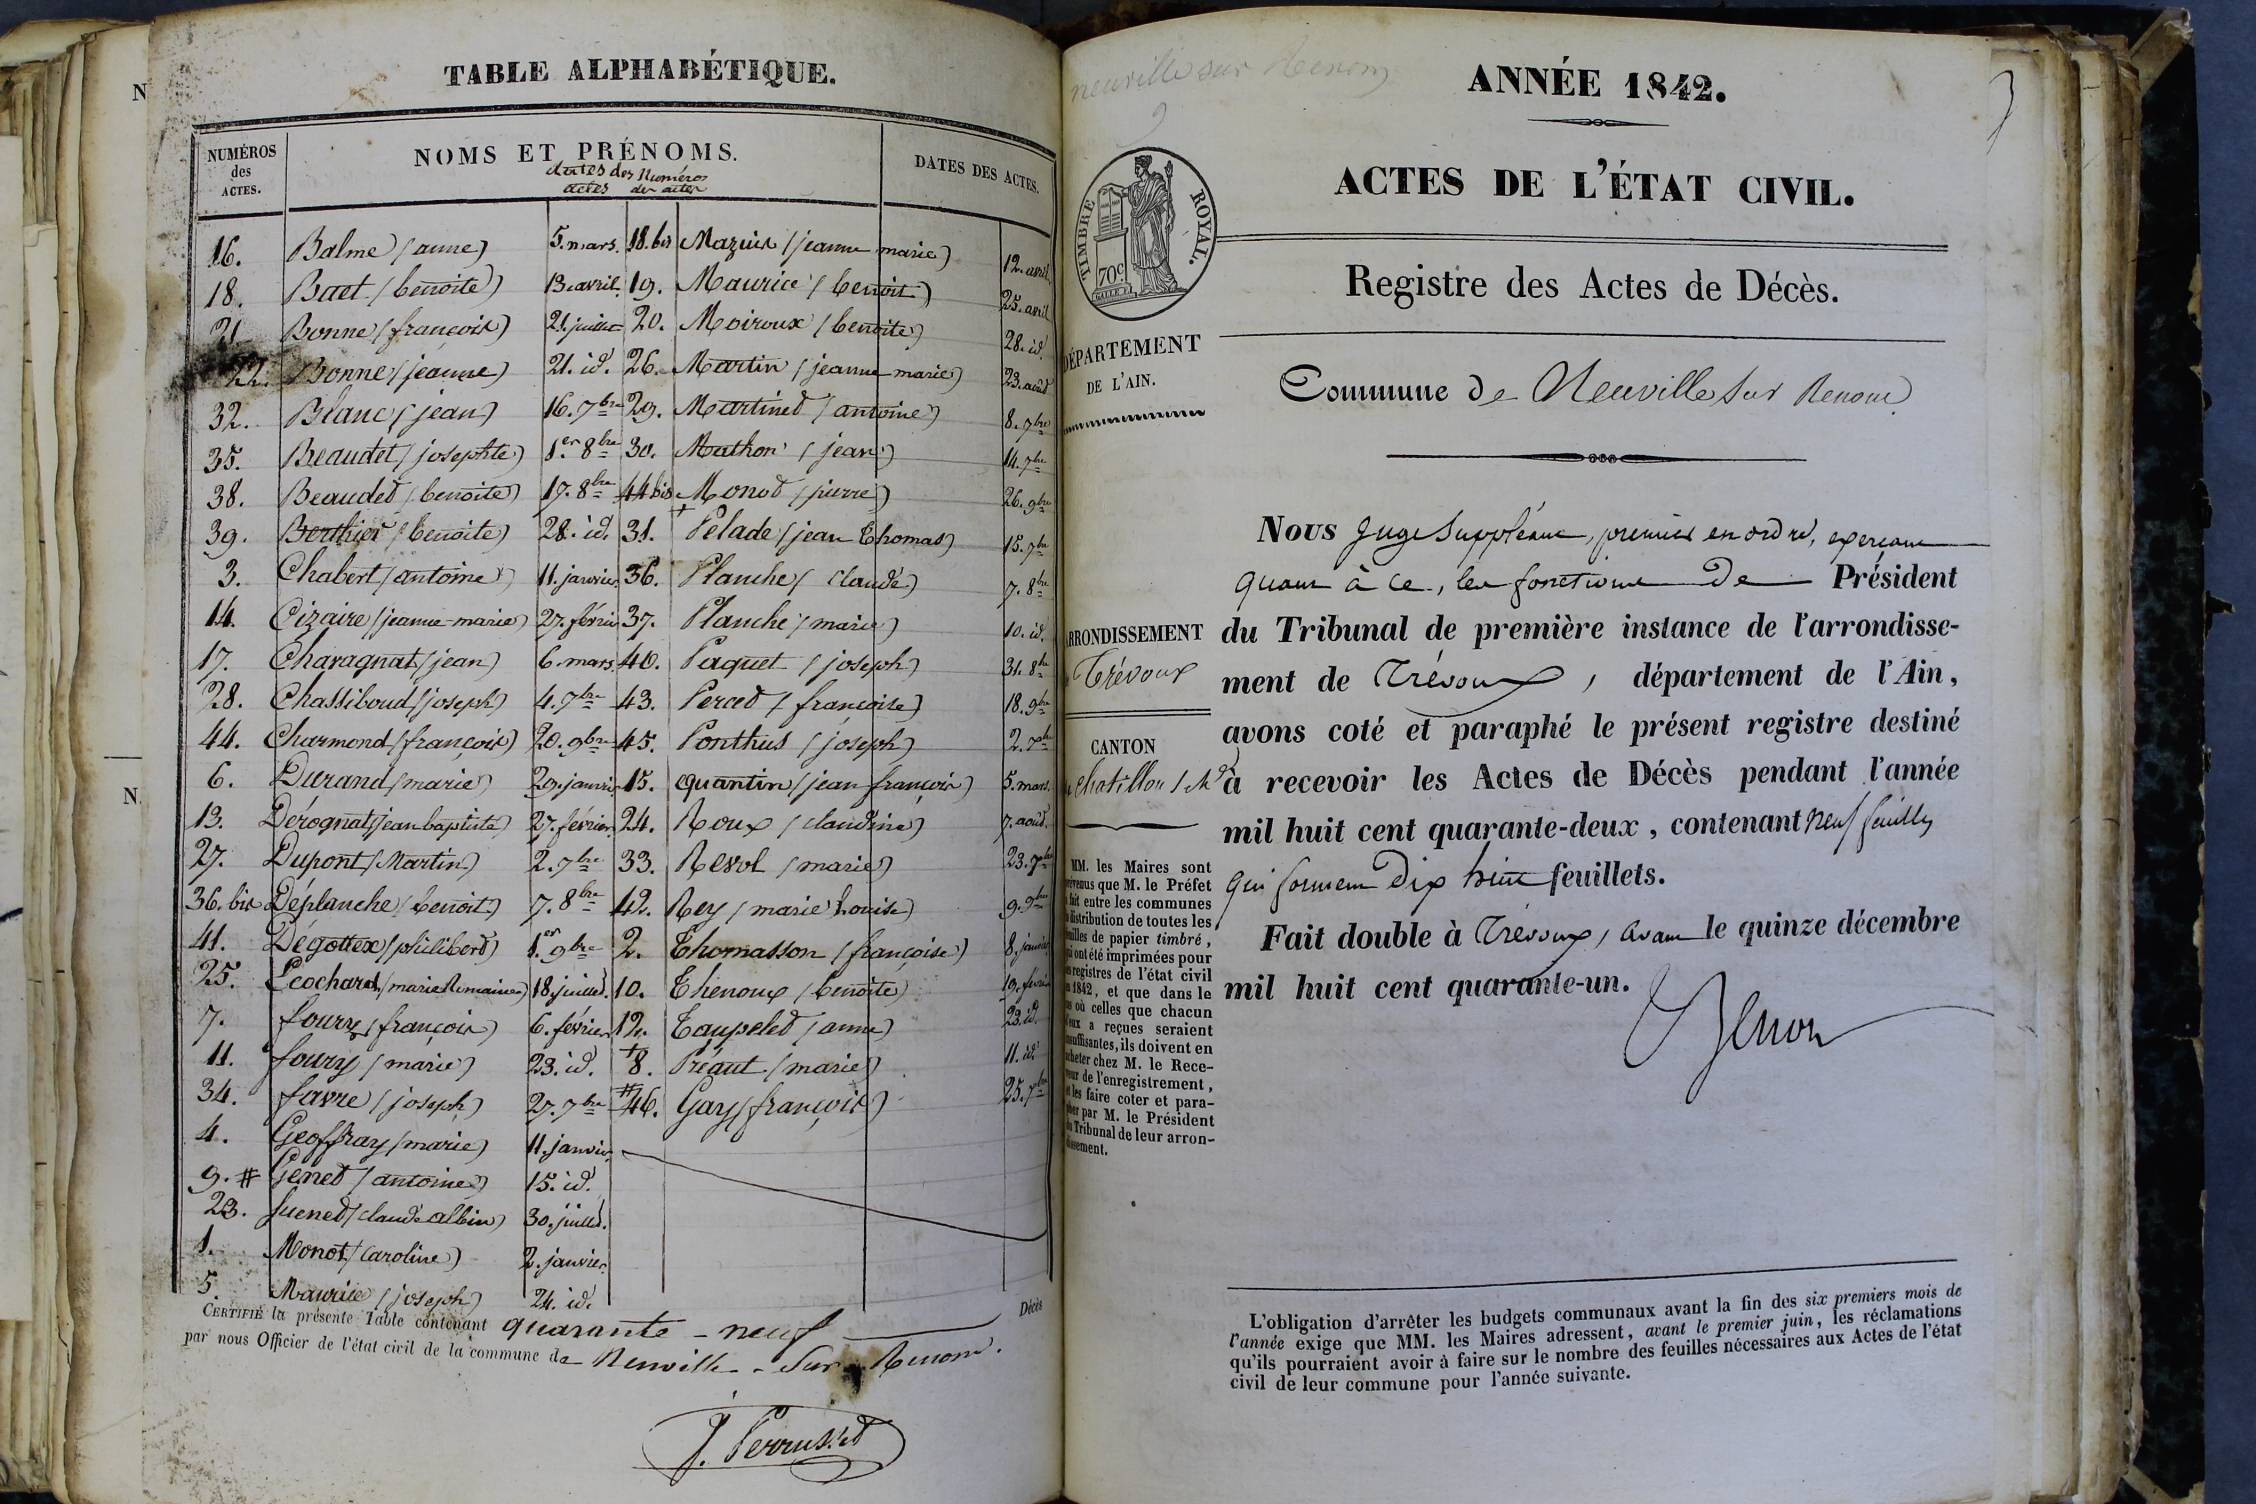 TABLE ALPHABÉTIQUE.
NUMÉROS des ACTES.
NOMS ET PRÉNOMS.
DATES DES ACTES.
dates des actes
Numéros des actes
16. Balme (anne) 5. mars. 18. bis Mazuir (jeanne marie) 12. avril
18. Baet (benoite) 13. avril. 19. Maurice (benoit) 25. avril
21 Bonne (françois) 21. juillet 20. Moiroux (benoite) 28. id.
22. Bonne (jeanne) 21. id. 26. Martin (jeanne marie) 23. août
32. Blanc (jean) 16. 7bre 29. Martined (antoine) 8. 7bre
35. Beaudet (josephte) 1er 8bre 30. Mathon (jean) 14. 7bre
38. Beauded (benoite) 17. 8bre 44 bis Monod (pierre) 26. 9bre
39. Berthier (benoite) 28. id. 31. Pelade (jean Thomas) 15. 7bre
3. Chabert (antoine) 11. janvier. 36. Planche (claude) 7. 8bre
14. Cizaire (jeanne-marie) 27. février 37. Planche (marie) 10. id.
17. Charagnat (jean) 6. mars. 40. Paquet (joseph) 31. 8bre
28. Chassiboud (joseph) 4. 7bre 43. Perced (françoise) 18. 9bre
44. Charmond (françois) 20. 9bre 45. Ponthus (joseph) 2. Xbre
6. Durand (marie) 29. janvier 15. quantin (jean françois) 5. mars.
13. Dérognat (jean baptiste) 27. février 24. Roux (claudine) 7. août.
27. Dupont (Martin) 2. 7bre 33. Revol (marie) 23. 7bre
36. bis Déplanche (benoit) 7. 8bre 42. Rey (marie Louise) 9. 9bre
41. Dégottex (philiberd) 1er 9bre 2. Thomasson (françoise) 8. janvier
25. Ecochard (marie Romaine) 18. juilled. 10. Thenoux (benoite) 19. février
7. foury (françois) 6. février 12. Taupeled (anne) 23. id.
11. foury (marie) 23. id. 8. Préaut (marie) 11. id.
34. favre (joseph) 27. 7bre #46. Gay (françois) 25. Xbre
4. Geoffray (marie) 11. janvier
9. # Gened (antoine) 15. id.
23. Juened (claude albin) 30. juilled.
1. Monot (Caroline) 2. janvier.
5. Maurice (joseph) 24. id.
CERTIFIÉ la présente Table contenant quarante - neuf Décès
par nous Officier de l'état civil de la commune de Neuville - Sur - Renom.
J. Perrussed
neuville sur Renom
ANNÉE 1842.
ACTES DE L'ÉTAT CIVIL.
TIMBRE ROYAL.
70c
Registre des Actes de Décès.
DÉPARTEMENT
DE L'AIN.
Commune de Neuville Sur Renom
ARRONDISSEMENT
Trévoux
CANTON
Chatillon
MM. les Maires sont
prévenus que M. le Préfet
a fait entre les communes
la distribution de toutes les
feuilles de papier timbré,
qui ont été imprimées pour
les registres de l'état civil
en 1842, et que dans le
cas où celles que chacun
d'eux a reçues seraient
insuffisantes, ils doivent en
acheter chez M. le Rece-
veur de l'enregistrement,
et les faire coter et para-
pher par M. le Président
du Tribunal de leur arron-
dissement.
Nous Juge Suppléant, premier en ordre, exerçant
quant à ce, les fonctions de Président
du Tribunal de première instance de l'arrondisse-
ment de Trévoux, département de l'Ain,
avons coté et paraphé le présent registre destiné
à recevoir les Actes de Décès pendant l'année
mil huit cent quarante-deux, contenant neuf feuilles
qui forment Dix huit feuillets.
Fait double à Trévoux, avant le quinze décembre
mil huit cent quarante-un.
L'obligation d'arrêter les budgets communaux avant la fin des six premiers mois de
l'année exige que MM. les Maires adressent, avant le premier juin, les réclamations
qu'ils pourraient avoir à faire sur le nombre des feuilles nécessaires aux Actes de l'état
civil de leur commune pour l'année suivante.